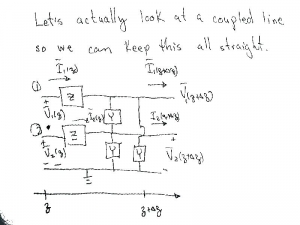 Let's actually look at a coupled line
so we can keep this all straight.
I₁(z)
I₁(z+Δz)
①
Z
V₁(z+Δz)
V₁(z)
Y
I₂(z+Δz)
②
Z
V₂(z)
Y
Y
V₂(z+Δz)
z
z+Δz